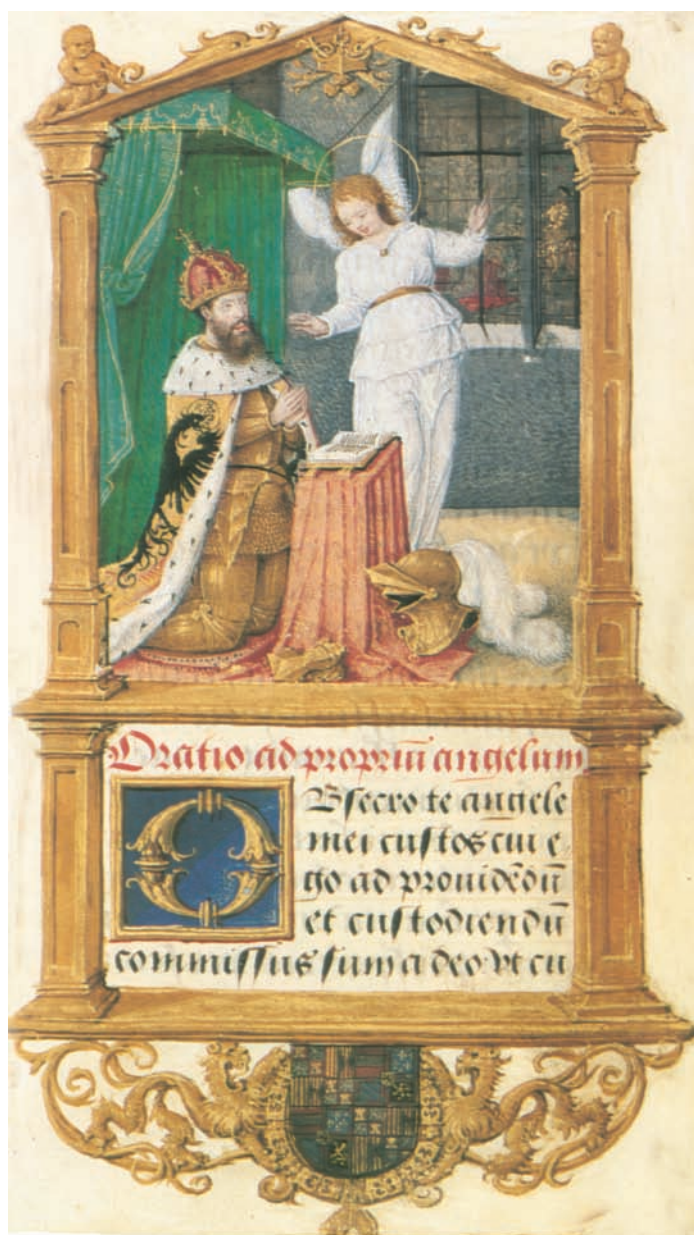 Oratio ad propriū angelum
OBsecro te angele
mei custos cui e-
go ad prouidēdū
et custodiendū
commissus sum a deo vt cu